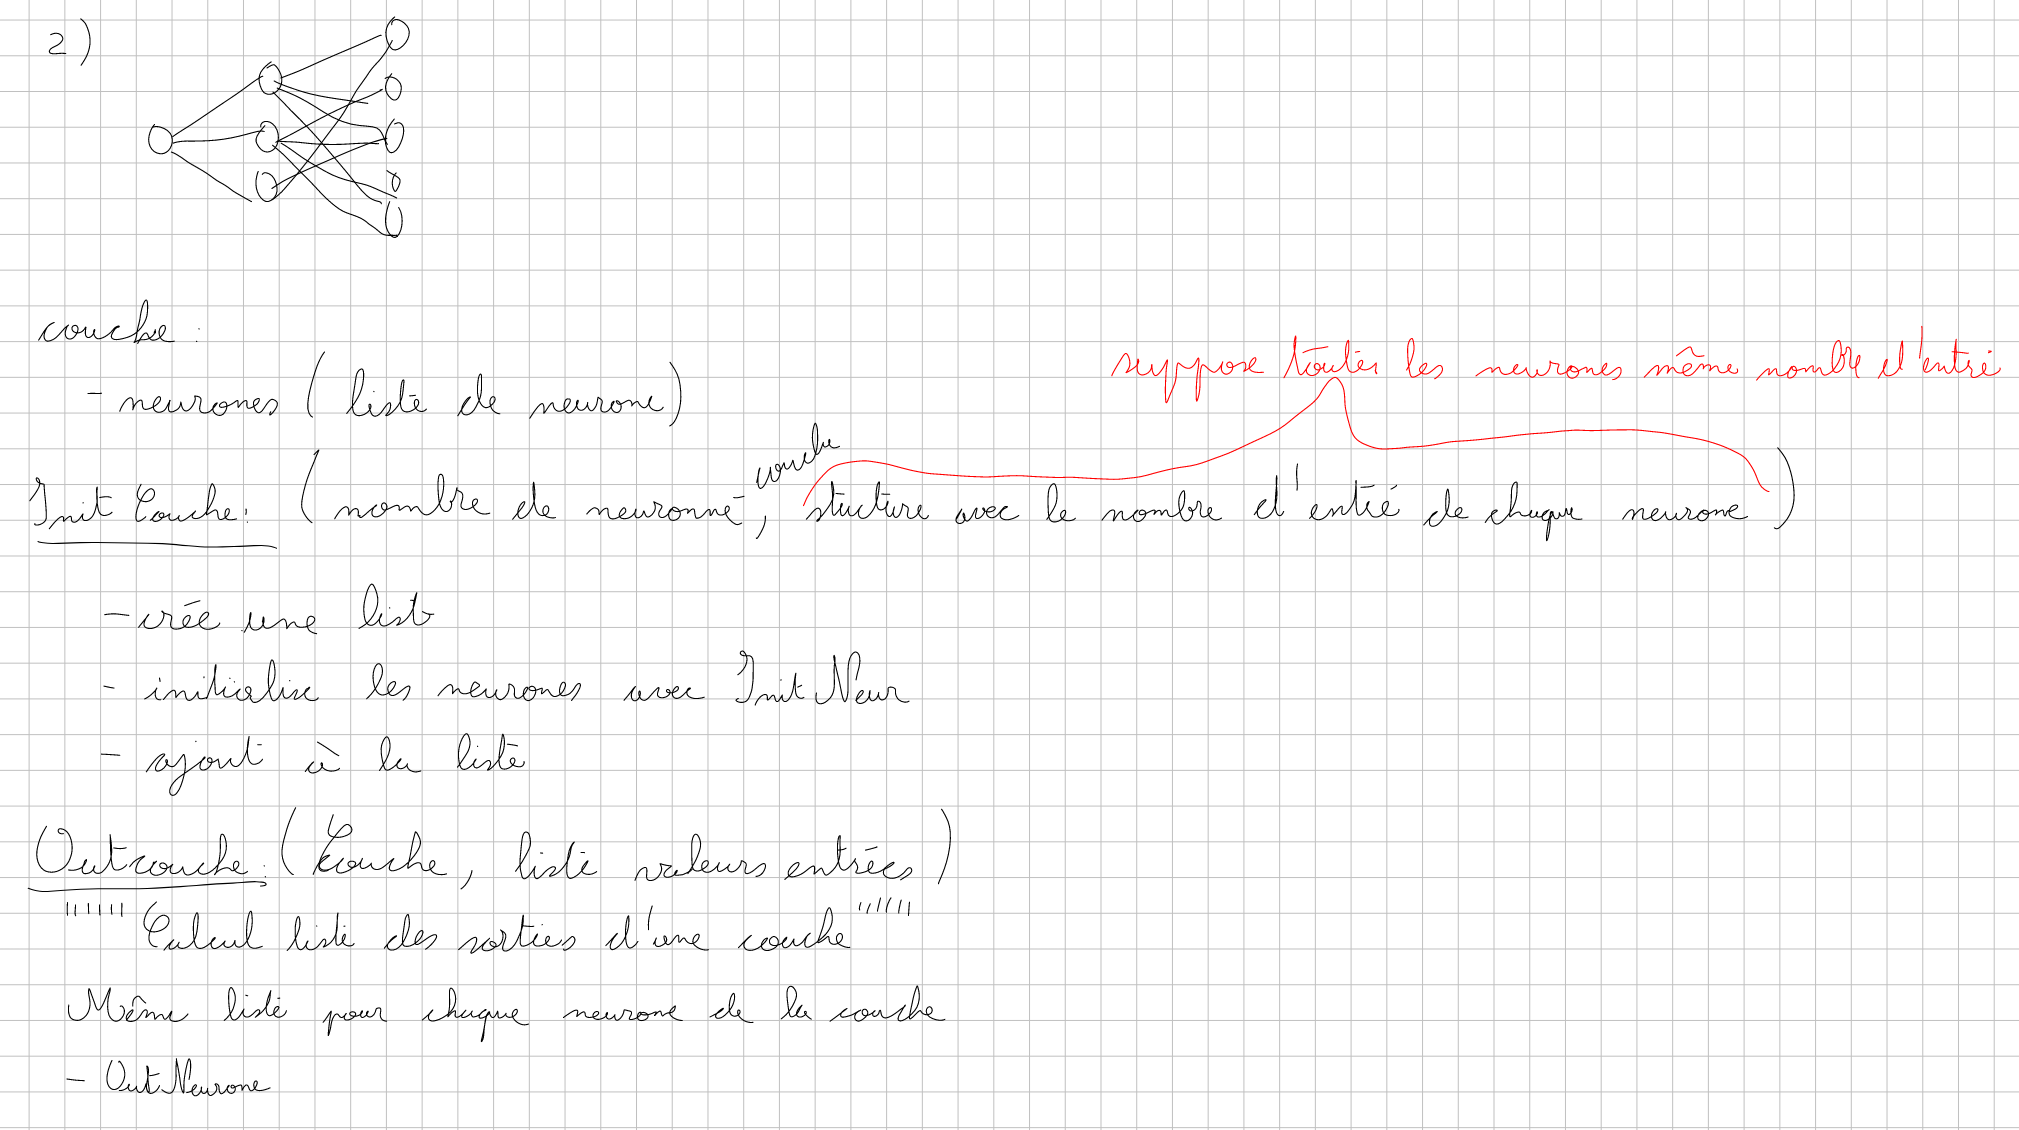 2)
couche :
- neurones (liste de neurone)
suppose toutes les neurones même nombre d'entré
couche
Init Couche: (nombre de neuronne, stucture avec le nombre d'entré de chaque neurone)
- crée une list
- initialise les neurones avec Init Neur
- ajout à la liste
Outcouche: (Couche, liste valeurs entrées)
"""Calcul liste des sorties d'une couche"""
Même liste pour chaque neurone de la couche
- Out Neurone